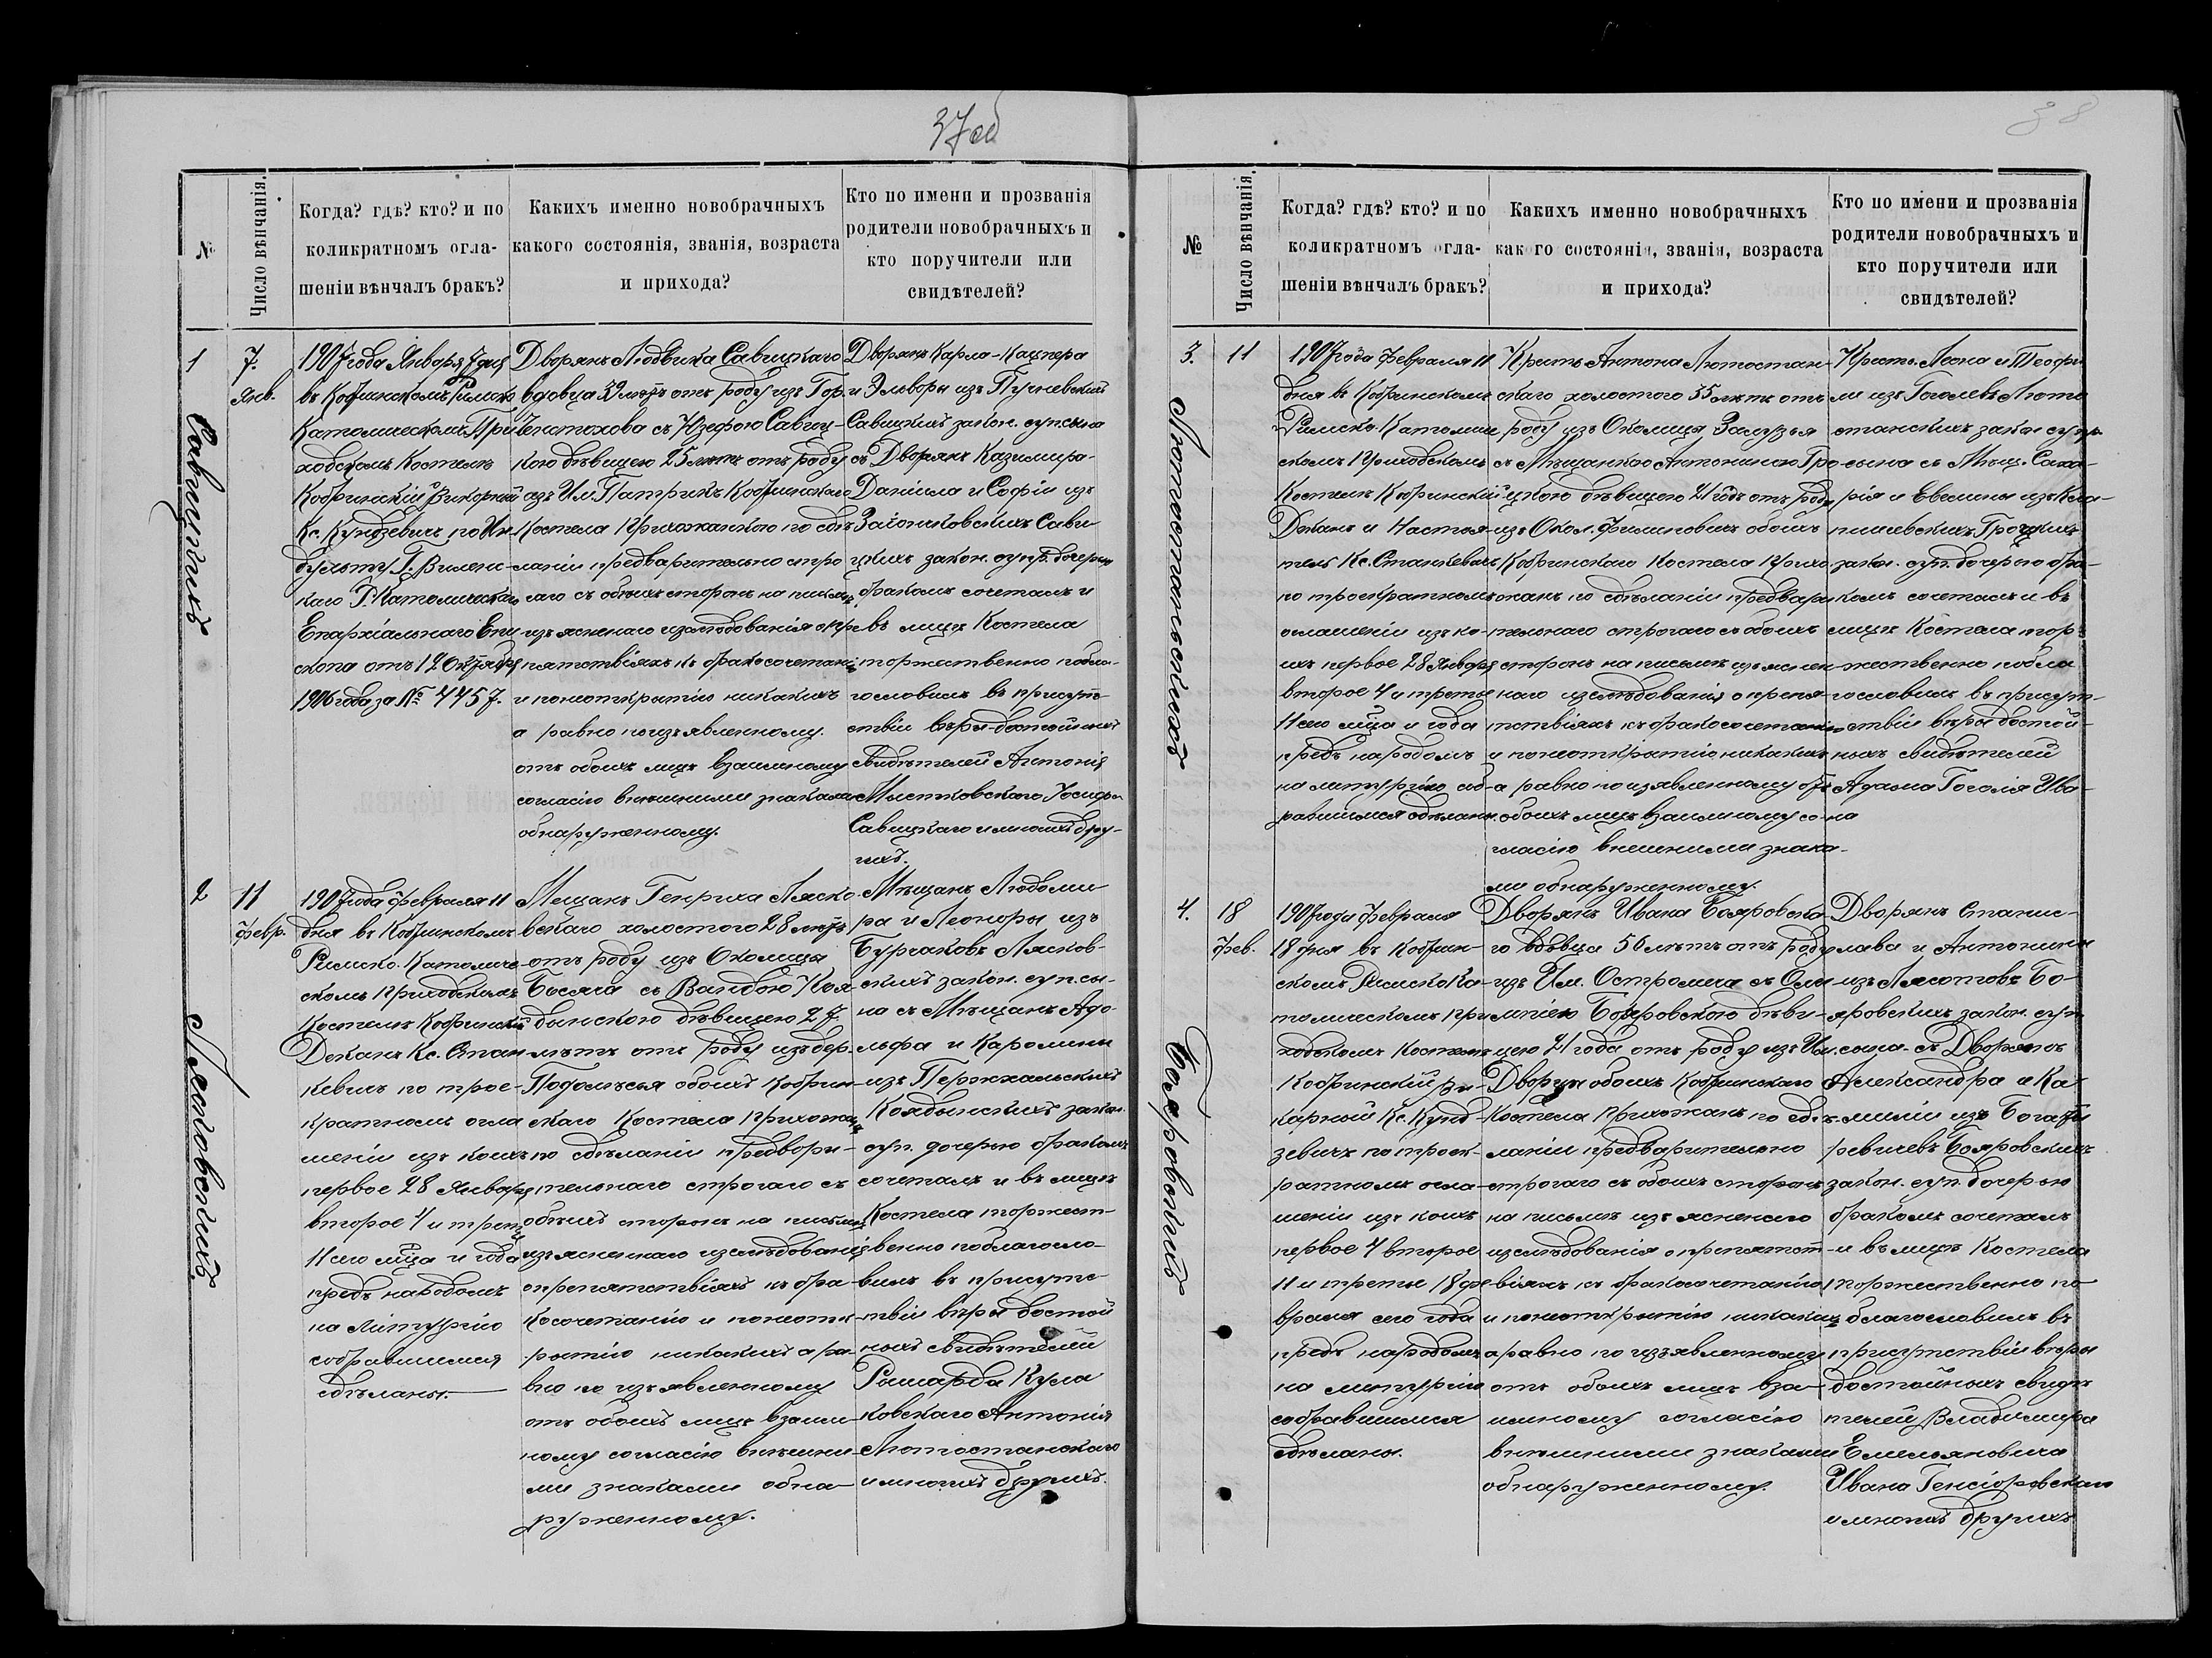 37об
38
№
Число вѣнчанія.
Когда? гдѣ? кто? и по
коликратномъ огла-
шеніи вѣнчалъ бракъ?
Какихъ именно новобрачныхъ
какого состоянія, званія, возраста
и прихода?
Кто по имени и прозванія
родители новобрачныхъ и
кто поручители или
свидѣтелей?
1
Савицкихъ
7.
Янв.
1907 года Января 7 дня
въ Кобринскомъ Римско
Католическомъ При
ходскомъ Костелѣ
Кобринскій Викарный
Кс. Кундзевичъ по Ин
дульту Г. Виленс-
каго Р. Католическаго
Епархіальнаго Епи
скопа отъ 12 Октября
1906 года за № 4457.
Дворянъ Людвика Савицкаго
вдовца 39 лѣтъ отъ роду изъ Гор.
Ченстохова съ Юзефою Савиц-
кою дѣвицею 25 лѣтъ отъ роду
изъ Им. Патрикъ Кобринскаго
Костела Прихожанкою по сдѣ
ланіи предварительно стро
гаго съ обѣихъ сторонъ на письмѣ
изъясненаго изслѣдованія о пре
пятствіяхъ къ бракосочетанію
и понеоткрытію никакихъ
а равно по изъявленному
отъ обоихъ лицъ взаимному
согласію внѣшними знаками
обнаруженному.
Дворянъ Карла-Кацпера
и Эльворы изъ Пучневскихъ
Савицкихъ закон. суп. сына
съ Дворянъ Казимира-
Даніила и Софіи изъ
Заіончковскихъ Сави
цкихъ закон. супр. дочерью
бракомъ сочеталъ и
въ лицѣ Костела
торжественно побла-
гословилъ въ присутс-
ствіи вѣры-достойныхъ
Свидѣтелей Антонія
Милтковскаго Іосифа
Савицкаго и многихъ дру-
гихъ.
2
Лясковскихъ
11
февр.
1907 года Февраля 11
дня въ Кобринскомъ
Римско-Католиче-
скомъ Приходскомъ
Костелѣ Кобринскій
Деканъ Кс. Стан
кевичъ по трое-
кратномъ огла
шеніи изъ коихъ
первое 28 Января
второе 4 и третье
11 сего мца и года
предъ народомъ
на Литургію
собравшимся
сдѣланы.
Мещанъ Генриха Ляско
вскаго холостого 28 лѣтъ
отъ роду изъ Околицы
Босяча съ Вандою Коя
дынскою дѣвицею 27
лѣтъ отъ роду изъ дер.
Подолѣсья обоихъ Кобрин
скаго Костела Прихожанъ
по сдѣланіи предвори-
тельнаго строгаго съ
обѣихъ сторонъ на письмѣ
изъясненаго изслѣдованія
о препятствіяхъ къ бра-
косочетанію и понеотк-
рытію никакихъ а ра-
вно по изъявленному
отъ обоихъ лицъ взаим-
ному согласію внѣшни-
ми знаками обна-
руженному.
Мѣщанъ Любоми
ра и Леоноры изъ
Бурчаковъ Лясков-
скихъ закон. суп. сы-
на съ Мѣщанъ Адо-
льфа и Каролины
изъ Пержхальскихъ
Коядынскихъ закон.
суп. дочерью бракомъ
сочеталъ и въ лицѣ
Костела торжест-
венно поблагосло-
вилъ въ присутс-
твіи вѣры достой
ныхъ свидѣтелей
Ришарда Кула
ковскаго Антонія
Лютостанскаго
и многихъ другихъ.
№
Число вѣнчанія.
Когда? гдѣ? кто? и по
коликратномъ огла-
шеніи вѣнчалъ бракъ?
Какихъ именно новобрачныхъ
какого состоянія, званія, возраста
и прихода?
Кто по имени и прозванія
родители новобрачныхъ и
кто поручители или
свидѣтелей?
3.
Лютостанскихъ
11
1907 года Февраля 11
дня въ Кобринскомъ
Римско-Католиче
скомъ Приходскомъ
Костелѣ Кобринскій
Деканъ и Настоя-
тель Кс. Станкевичъ
по троекратномъ
оглашеніи изъ ко-
ихъ первое 28 Января
второе 4 и третье
11 сего мца и года
предъ народомъ
на литургію соб-
равшимся сдѣланы.
Крест. Антона Лютостан-
скаго холостого 35 лѣтъ отъ
роду изъ Околицы Залузья
съ Мѣщанкою Антониною Гро-
цкою дѣвицею 21 годъ отъ роду
изъ Окол. Филиповичъ обоихъ
Кобринскаго Костела Прихо
жанъ по сдѣланіи предвари
тельнаго строгаго съ обоихъ
сторонъ на письмѣ изъяснен
наго изслѣдованія о препя-
тствіяхъ къ бракосочетанію
и понеоткрытію никакихъ
а равно по изъявленному отъ
обоихъ лицъ взаимному со-
гласію внешними знака-
ми обнаруженному.
Крест. Леона и Теофи
ли изъ Гоголевъ Люто
станскихъ закон. супр.
сына съ Мѣщ. Саха-
рія и Евелины изъ Кля-
пишевскихъ Гроцкихъ
закон. суп. дочерью бра-
комъ сочеталъ и въ
лицѣ Костела тор-
жественно побла
гословилъ въ присут-
ствіи вѣры достой-
ныхъ свидѣтелей
Адама Гоголя Ива-
на
4.
Бояровскихъ
18
Фев.
1907 года Февраля
18 дня въ Кобрин-
скомъ Римско Ка-
толическомъ При
ходскомъ Костелѣ
Кобринскій Ви-
карный Кс. Кунд-
зевичъ по троек-
ратномъ огла-
шеніи изъ коихъ
первое 4 второе
11 и третье 18 Фе
враля сего года
предъ народомъ
на литургію
собравшимся
сдѣланы.
Дворянъ Ивана Бояровска-
го вдовца 56 лѣтъ отъ роду
изъ Им. Остромеча съ Оли-
мпіею Бояровскою дѣви-
цею 21 года отъ роду изъ Им.
Дворцы обоихъ Кобринскаго
Костела Прихожанъ по сдѣ-
ланіи предварительно
строгаго съ обоихъ сторонъ
на письмѣ изъясненаго
изслѣдованія о препятст-
віяхъ къ бракосочетанію
и понеоткрытію никакихъ
а равно по изъявленному
отъ обоихъ лицъ вза-
имному согласію
внѣшними знаками
обнаруженному.
Дворянъ Станис-
лава и Антонины
изъ Лясотовъ Бо-
яровскихъ закон. суп.
сына съ Дворянъ
Александра и Ка
миліи изъ Богаты
ревичевъ Бояровскихъ
закон. суп. дочерью
бракомъ сочеталъ
и въ лицѣ Костела
торжественно по-
благословилъ въ
присутствіи вѣры
достойныхъ свидѣ
телей Владимира
Емельяновича
Ивана Генсіоровскаго
и многихъ другихъ